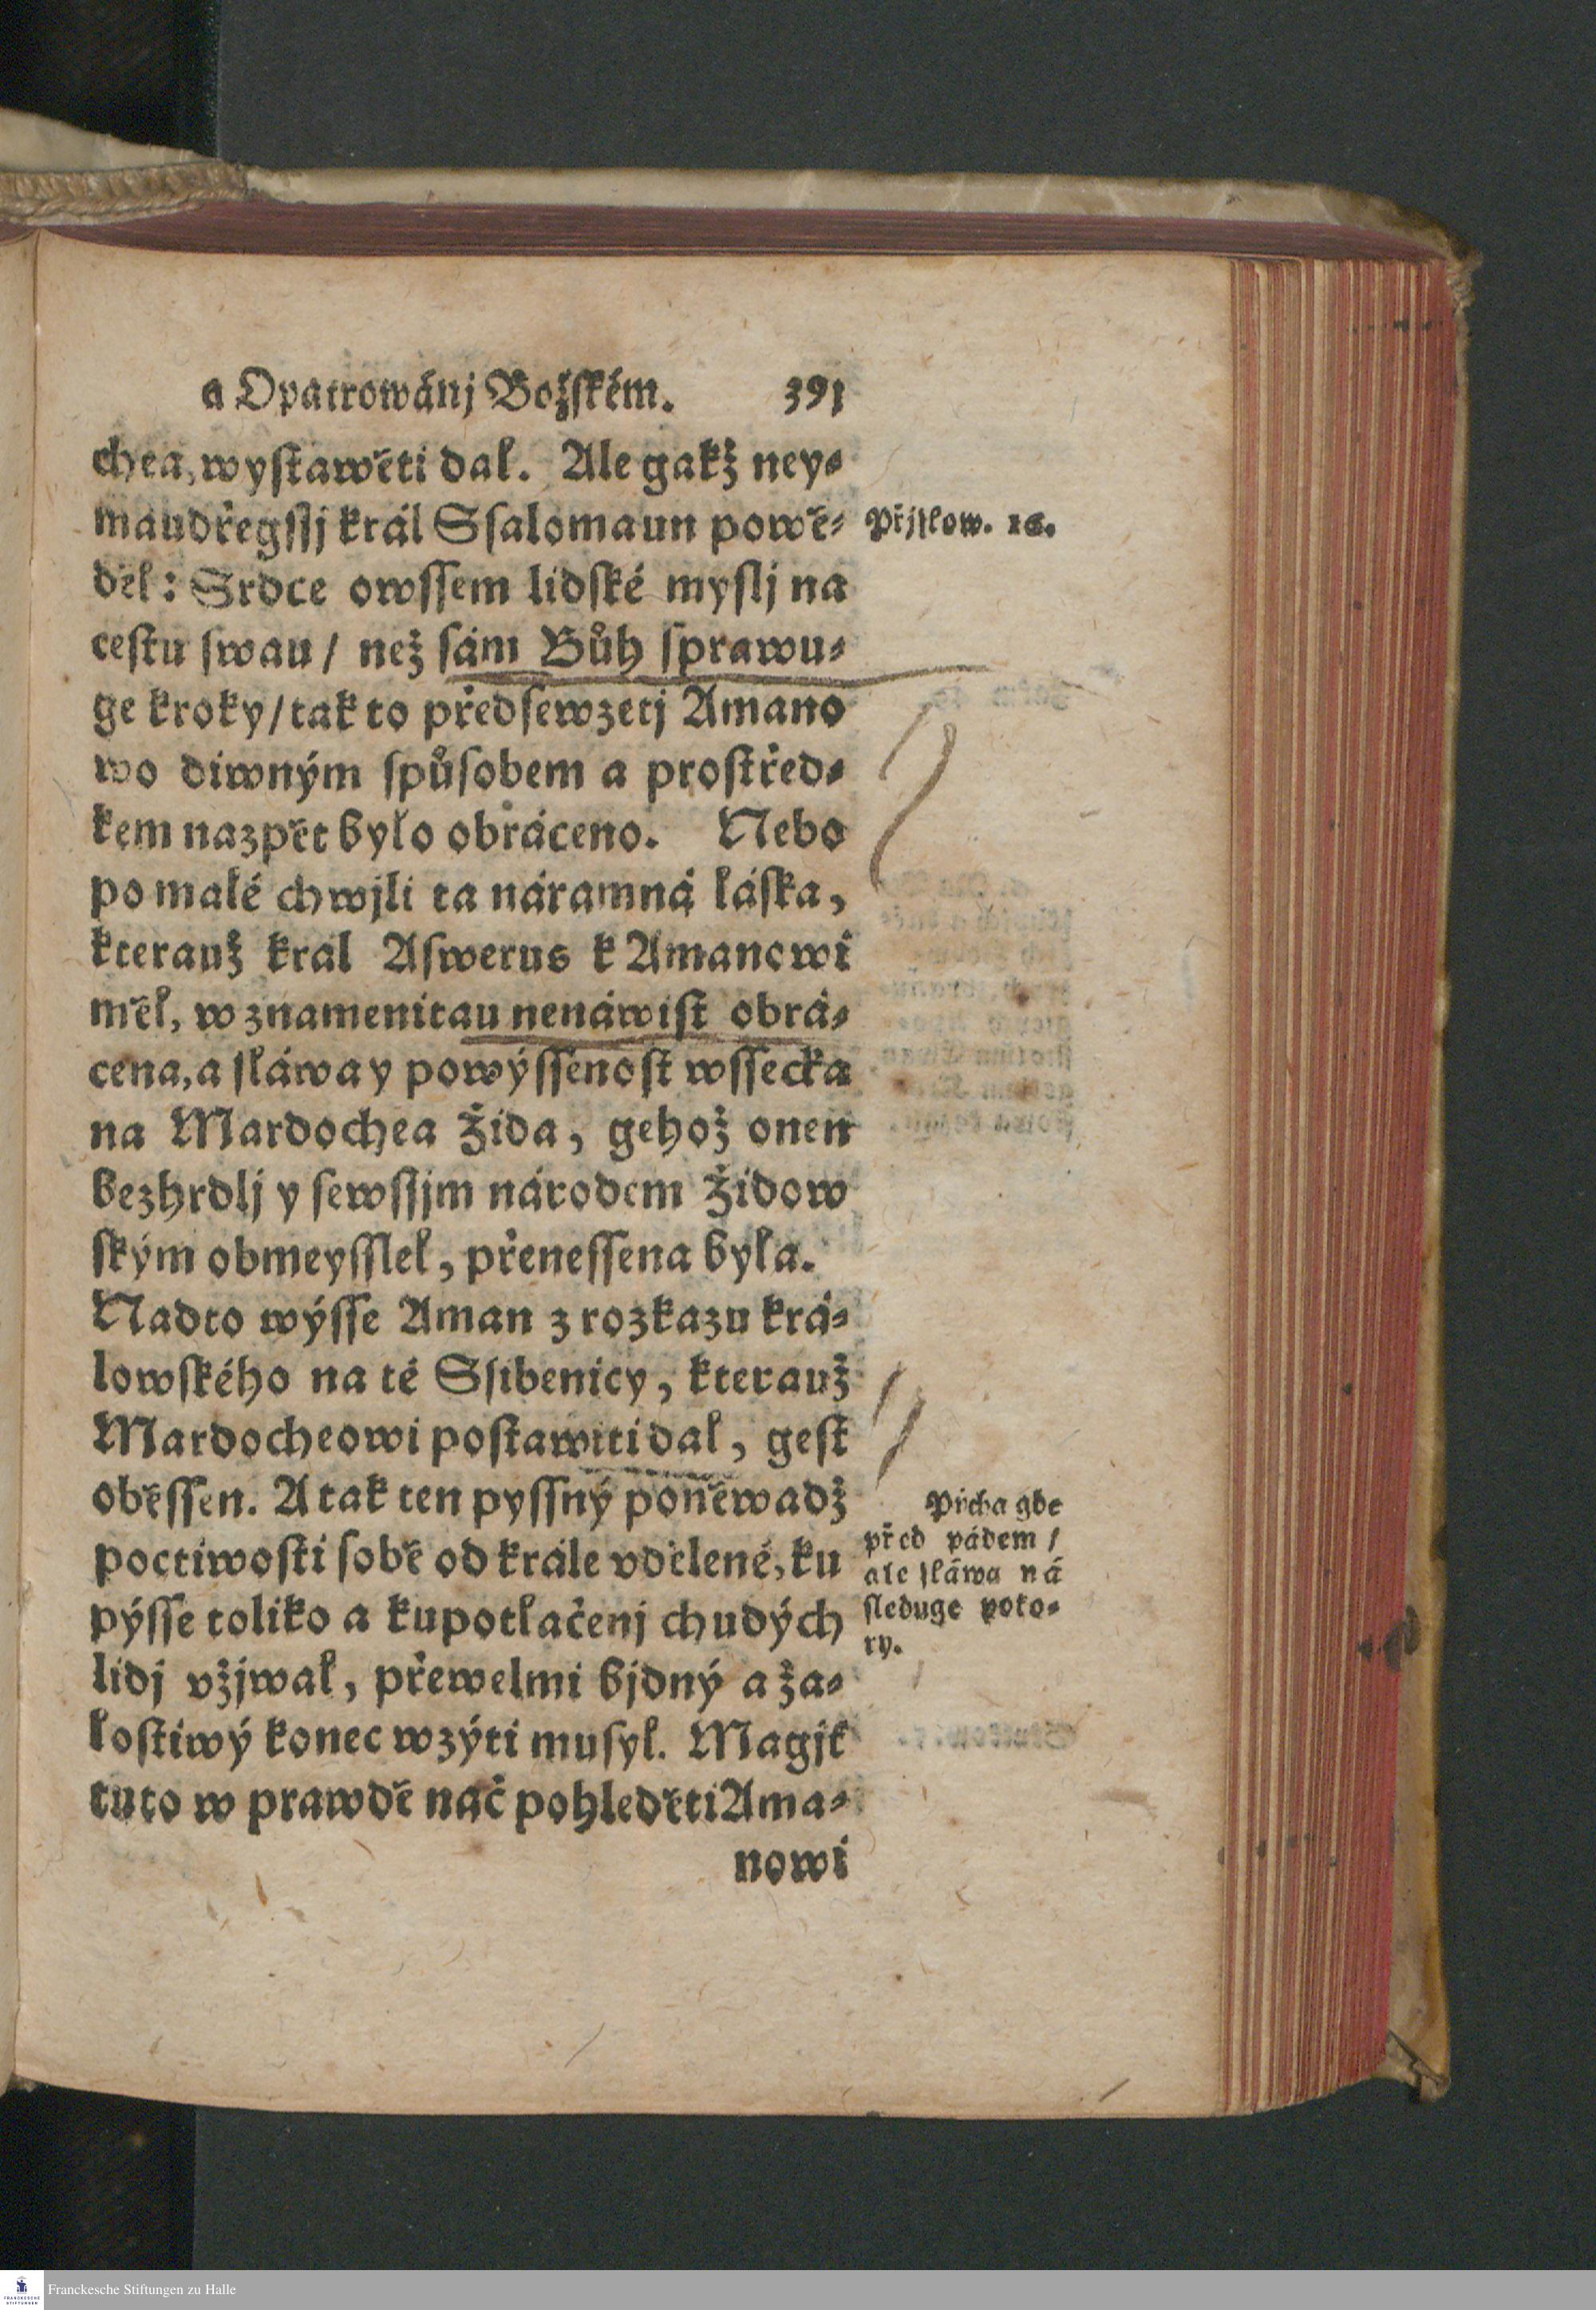 a Opatrowánj Božſkém. 391
chea, wyſtawěti dal. Ale gakž ney⸗
maudřegſſj král Sſalomaun powě⸗
děl: Srdce owſſem lidſké myſlj na
ceſtu ſwau / než ſám Bůh ſprawu⸗
ge kroky / tak to předſewzetj Amano
wo diwným ſpůſobem a proſtřed⸗
kem nazpět bylo obráceno. Nebo
po malé chwjli ta náramná láſka,
kterauž kral Aſwerus k Amanowi
měl, w znamenitau nenáwiſt obrá⸗
cena, a ſláwa y powýſſenoſt wſſecka
na Mardochea Žida, gehož onen
bezhrdlj y ſewſſjm národem Židow
ſkým obmeyſſlel, přeneſſena byla.
Nadto wýſſe Aman z rozkazu krá⸗
lowſkého na té Sſibenicy, kterauž
Mardocheowi poſtawiti dal, geſt
oběſſen. A tak ten pyſſný poněwadž
poctiwoſti ſobě od krále vdělené, ku
pýſſe toliko a kupotlačenj chudých
lidj vžjwal, přewelmi bjdný a ža⸗
loſtiwý konec wzýti muſyl. Magjk
tuto w prawdě nač pohleděti Ama⸗
nowi
Přjſlow. 16.
Pýcha gde
před pádem /
ale ſláwa ná
ſleduge poko⸗
ry.
Franckesche Stiftungen zu Halle
FRANCKESCHE
STIFTUNGEN